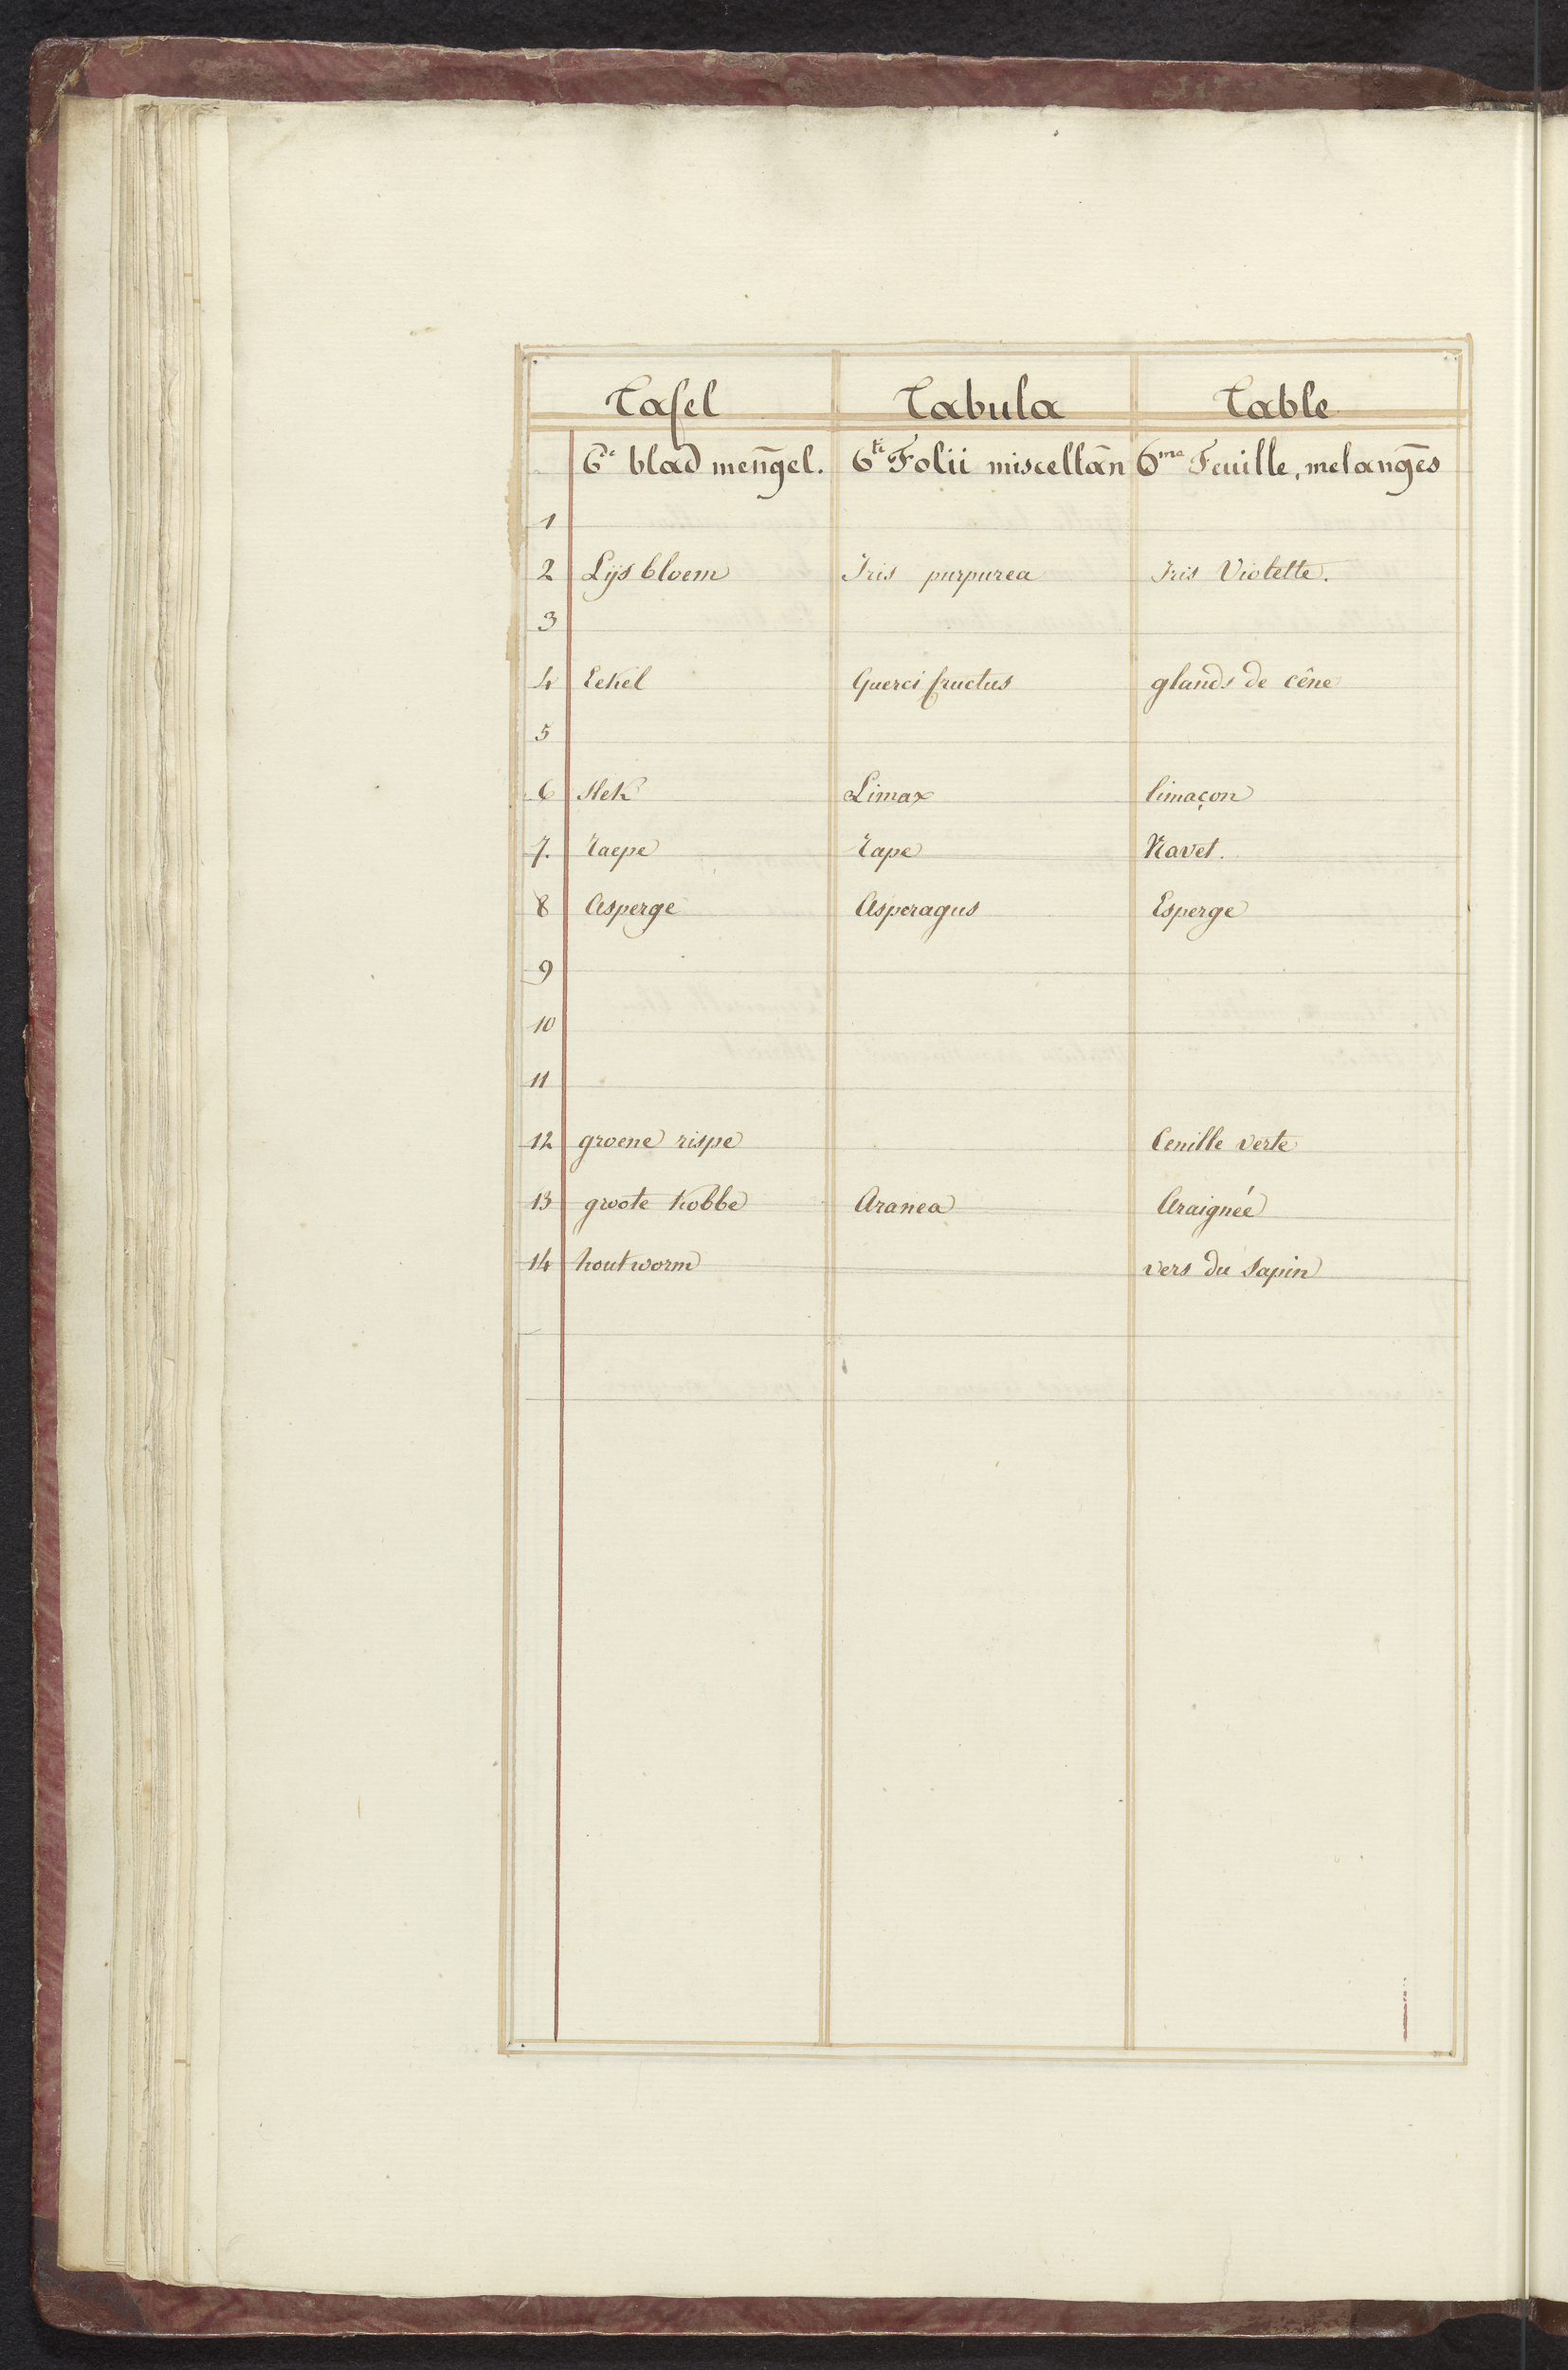 Tafel Tabula Table
6e blad meng̅el. 6ti Folii miscellān 6me Feuille, melang̅es
1
2 Lijs bloem Iris purpurea Iris Violette.
3
4 Eekel Querci fructus glands de cêne
5
6 slek Limax limaçon
7. raepe rape Navet.
8 Asperge Asperagus Esperge
9
10
11
12 groene rispe Cenille verte
13 groote kobbe Aranea Araignée
14 houtworm vers du sapin